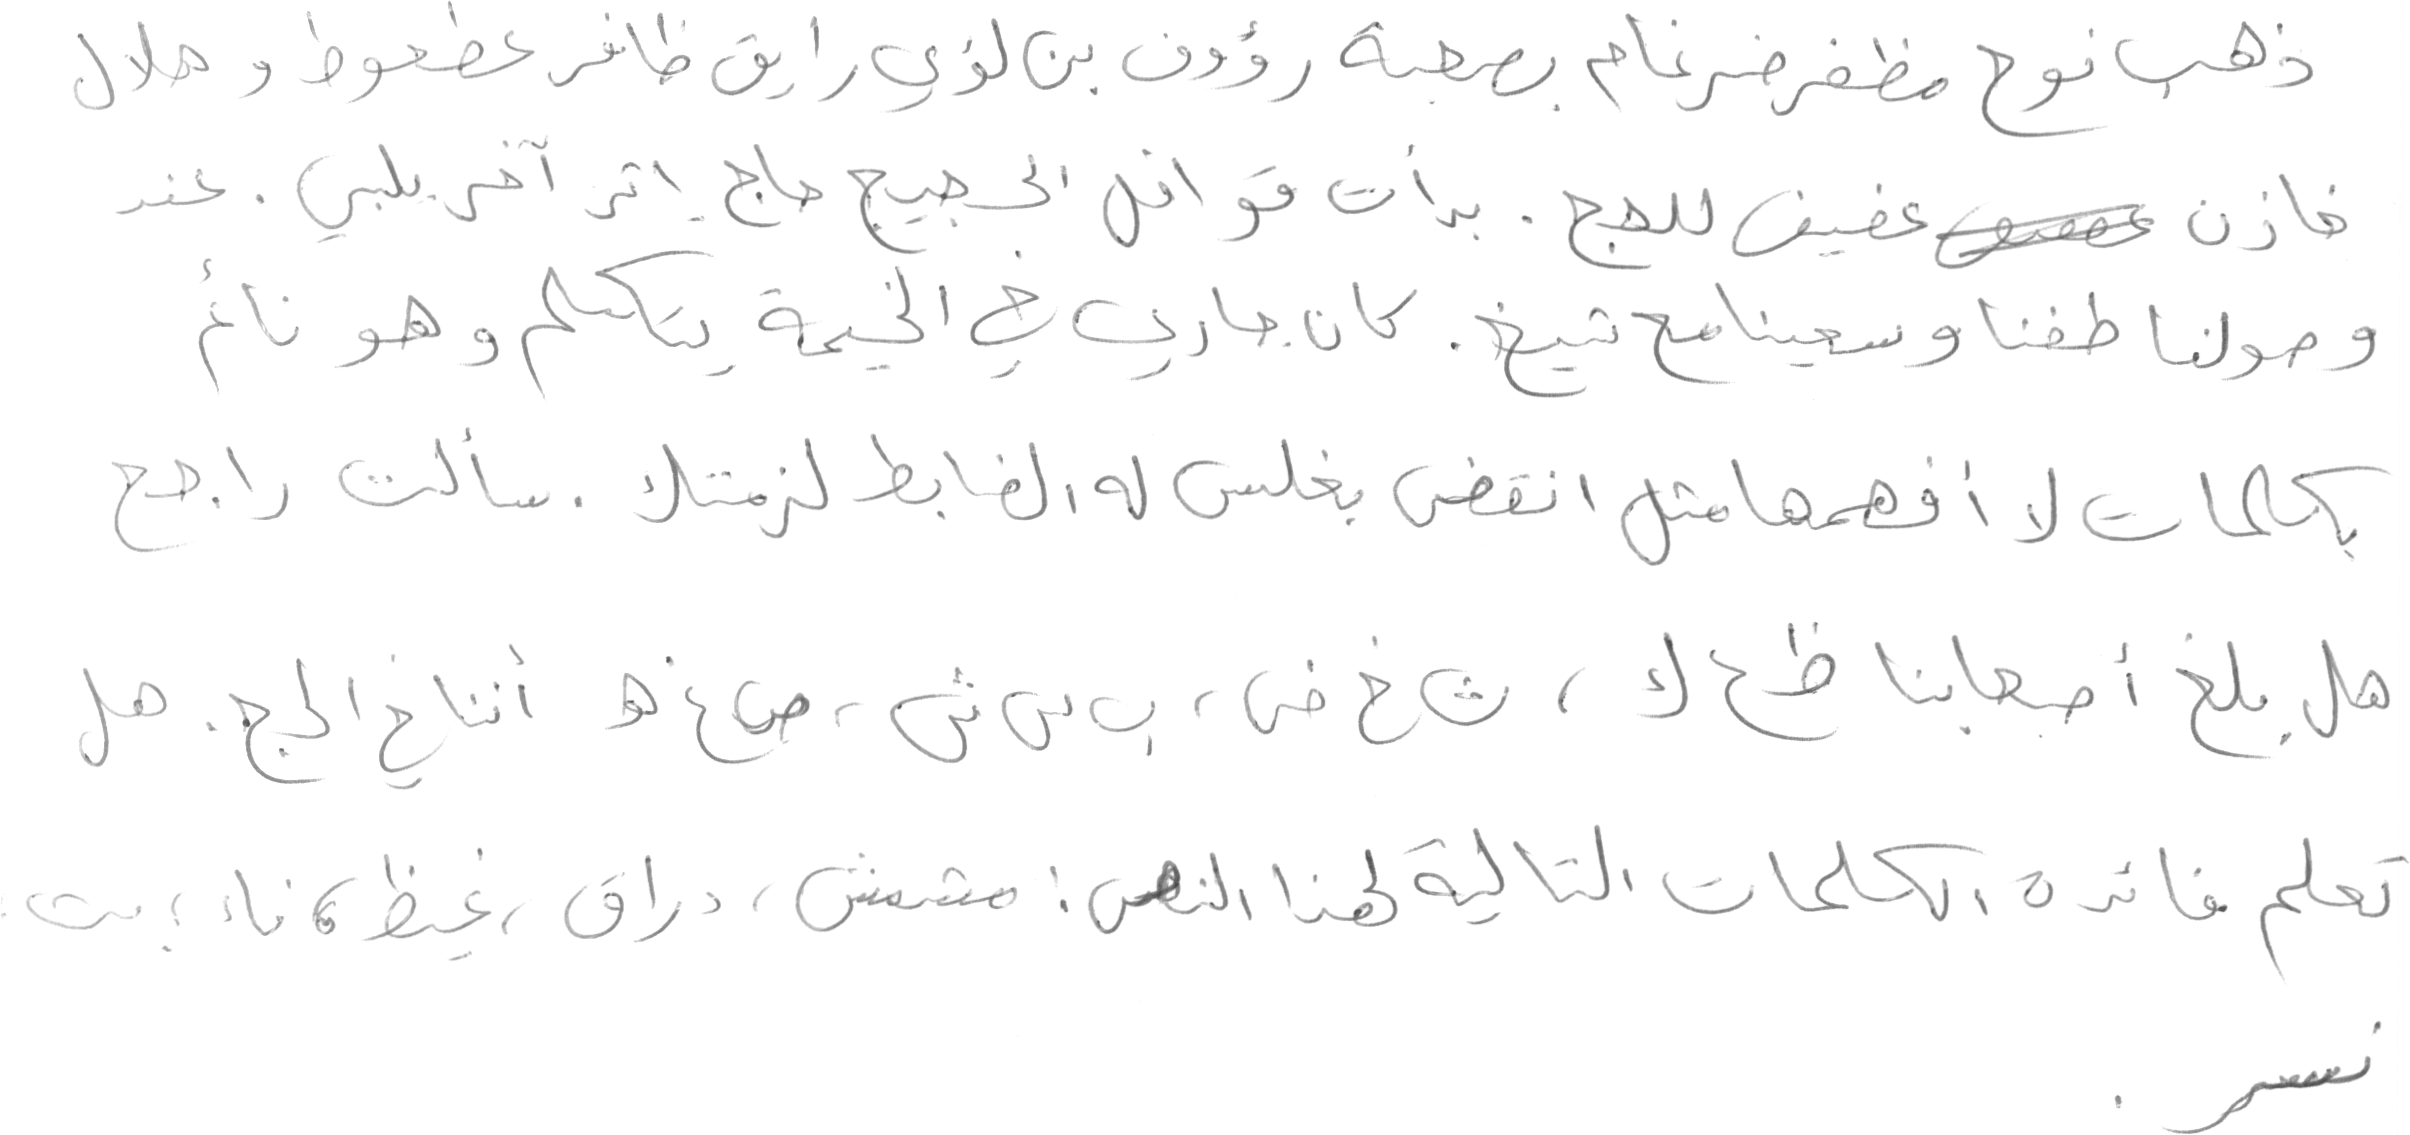 ذهب نوح مظفر ضرغام بصحبة رؤوف بن لؤي رايق ظافر عطعوط و هلال
خازن عفيف للحج . بدأت قوافل الحجيج حاج إثر آخر يلبي . عند
وصولنا طفنا وسعينا مع شيخ . كان جاري في الخيمة يتكلم وهو نائم
بكلمات لا أفهمها مثل انقض بغلس له الضابط لزمتك . سألت راجح
هل بلغ أصحابنا ظ ح ك ، ث خ ض ، ب س ش ، ص غ هـ أثناء الحج . هل
تعلم فائدة الكلمات التالية لهذا النص : مشمش ، دراق ، غيظ ، ناء ، بت ،
نسر .